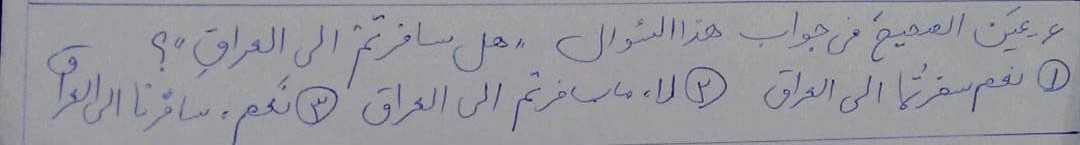 ۶- عَيِّن الصحيحَ في جواب هذا السُّوال «هل سافرتُمْ الى العراقِ»؟
① نعم سفرتُما الى العراق ② لا، ما سافرتم الى العراق ③ نَعم، سافَرْنا الى العراق